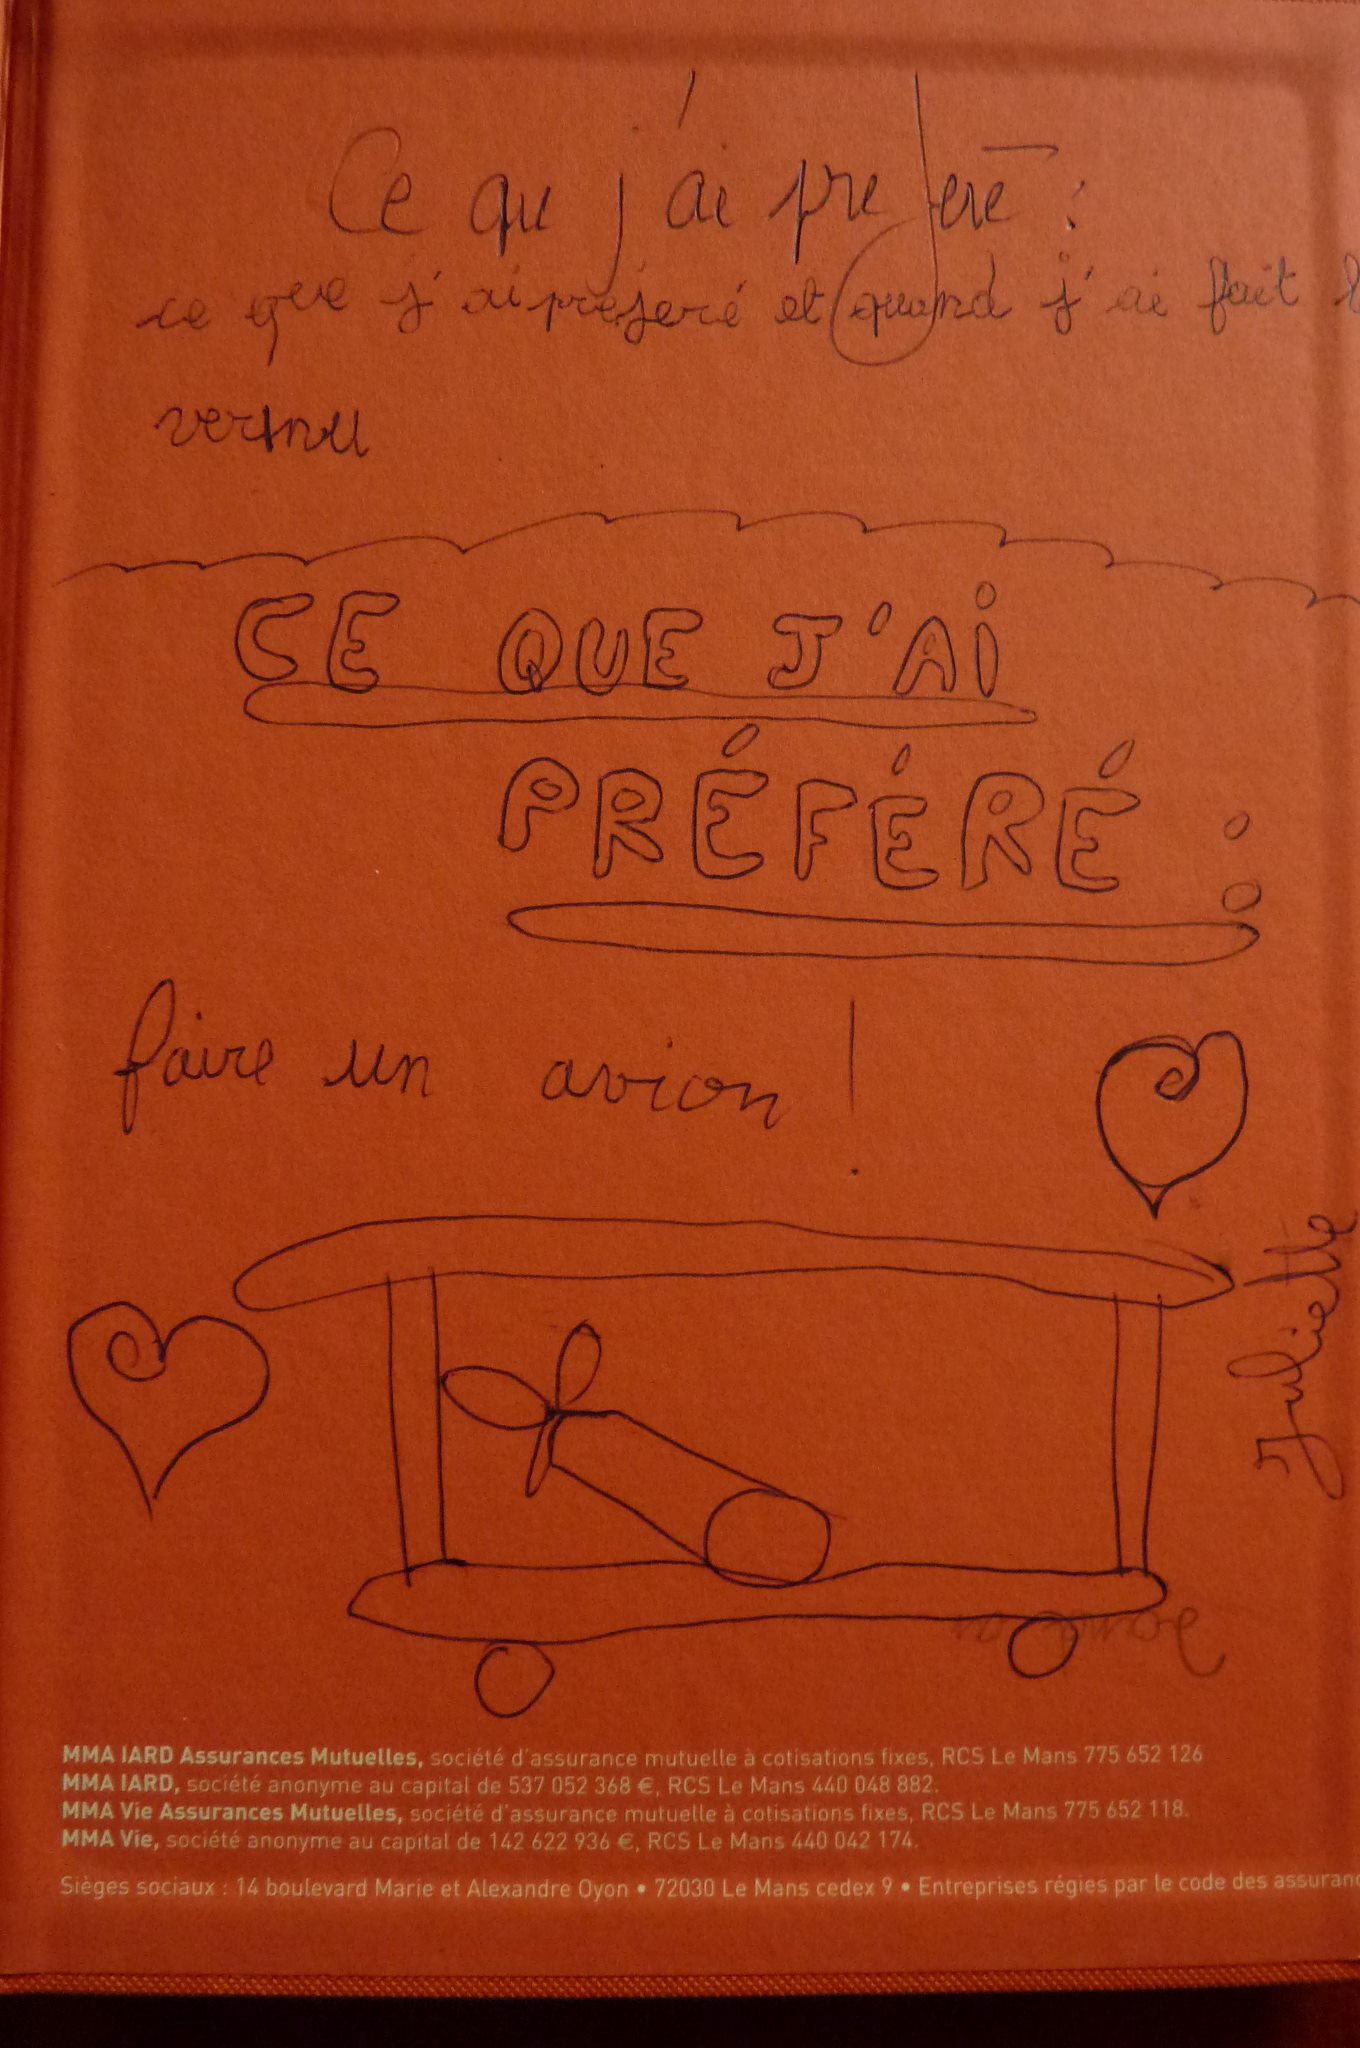 Ce que j'ai preferé :
ce que j'ai préferé et quand j'ai fait
CE QUE J'AI
PRÉFÉRÉ :
faire un avion !
Juliette
MMA IARD Assurances Mutuelles, société d'assurance mutuelle à cotisations fixes, RCS Le Mans 775 652 126
MMA IARD, société anonyme au capital de 537 052 368 €, RCS Le Mans 440 048 882.
MMA Vie Assurances Mutuelles, société d'assurance mutuelle à cotisations fixes, RCS Le Mans 775 652 118.
MMA Vie, société anonyme au capital de 142 622 936 €, RCS Le Mans 440 042 174.
Sièges sociaux : 14 boulevard Marie et Alexandre Oyon • 72030 Le Mans cedex 9 • Entreprises régies par le code des assuranc